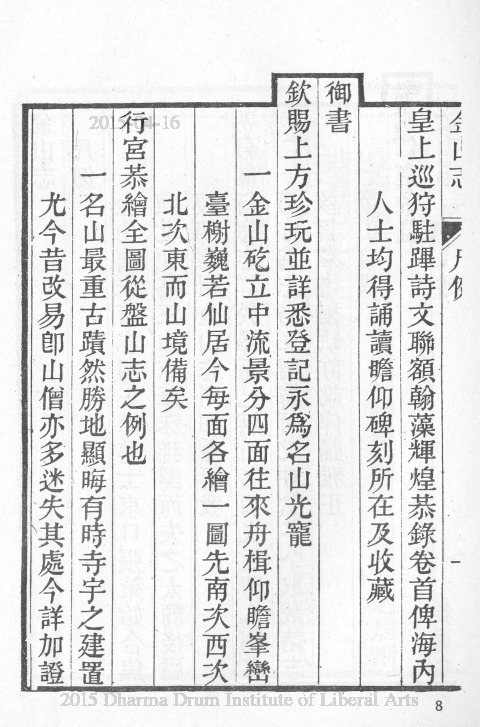 金山志 凡例 一
皇上巡狩駐蹕詩文聯額翰藻輝煌恭錄卷首俾海內
人士均得誦讀瞻仰碑刻所在及收藏
御書
欽賜上方珍玩並詳悉登記永爲名山光寵
一金山矻立中流景分四面往來舟楫仰瞻峯巒
臺榭巍若仙居今每面各繪 圖先南次西次
北次東而山境備矣
行宮恭繪全圖從盤山志之例也
一名山最重古蹟然勝地顯晦有時寺宇之建置
尤今昔改易卽山僧亦多迷失其處今詳加證
2015-04-16
2015 Dharma Drum Institute of Liberal Arts
8